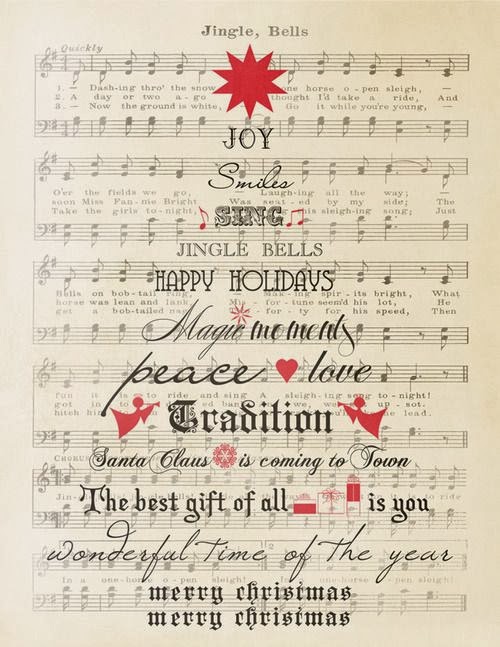 Jingle, Bells
Quickly
1. – Dash-ing thro' the snow one horse o - pen sleigh,
2. A day or two a - go thought I'd take a ride, And
3. – Now the ground is white, Go it while you're young,
JOY
Smiles
O'er the fields we go, Laugh-ing all the way;
soon Miss Fan-nie Bright Was seat-ed by my side; The
Take the girls to-night, this sleighing song; Just
SING
JINGLE BELLS
HAPPY HOLIDAYS
Bells on bob-tail ring, Mak-ing spir-its bright, What
horse was lean and lank Mis-for-tune seem'd his lot, He
got a bob-tailed nag for-ty for his speed, Then
Magic moments
peace love
fun it is to ride and sing A sleigh-ing song to-night!
got in up - sot.
hitch him lead.
Tradition
CHORUS
Santa Claus is coming to Town
The best gift of all is you
wonderful Time of The year
In a one-horse o-pen sleigh! In a one-horse o-pen sleigh!
merry christmas
merry christmas